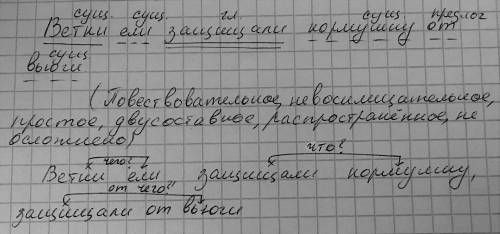 сущ. сущ. гл. сущ предлог
Ветки ели защищали кормушку от
сущ
вьюги
(Повествовательное, невосклицательное,
простое, двусоставное, распространённое, не
осложнено)
чего? что?
Ветки ели защищали кормушку,
от чего?
защищали от вьюги